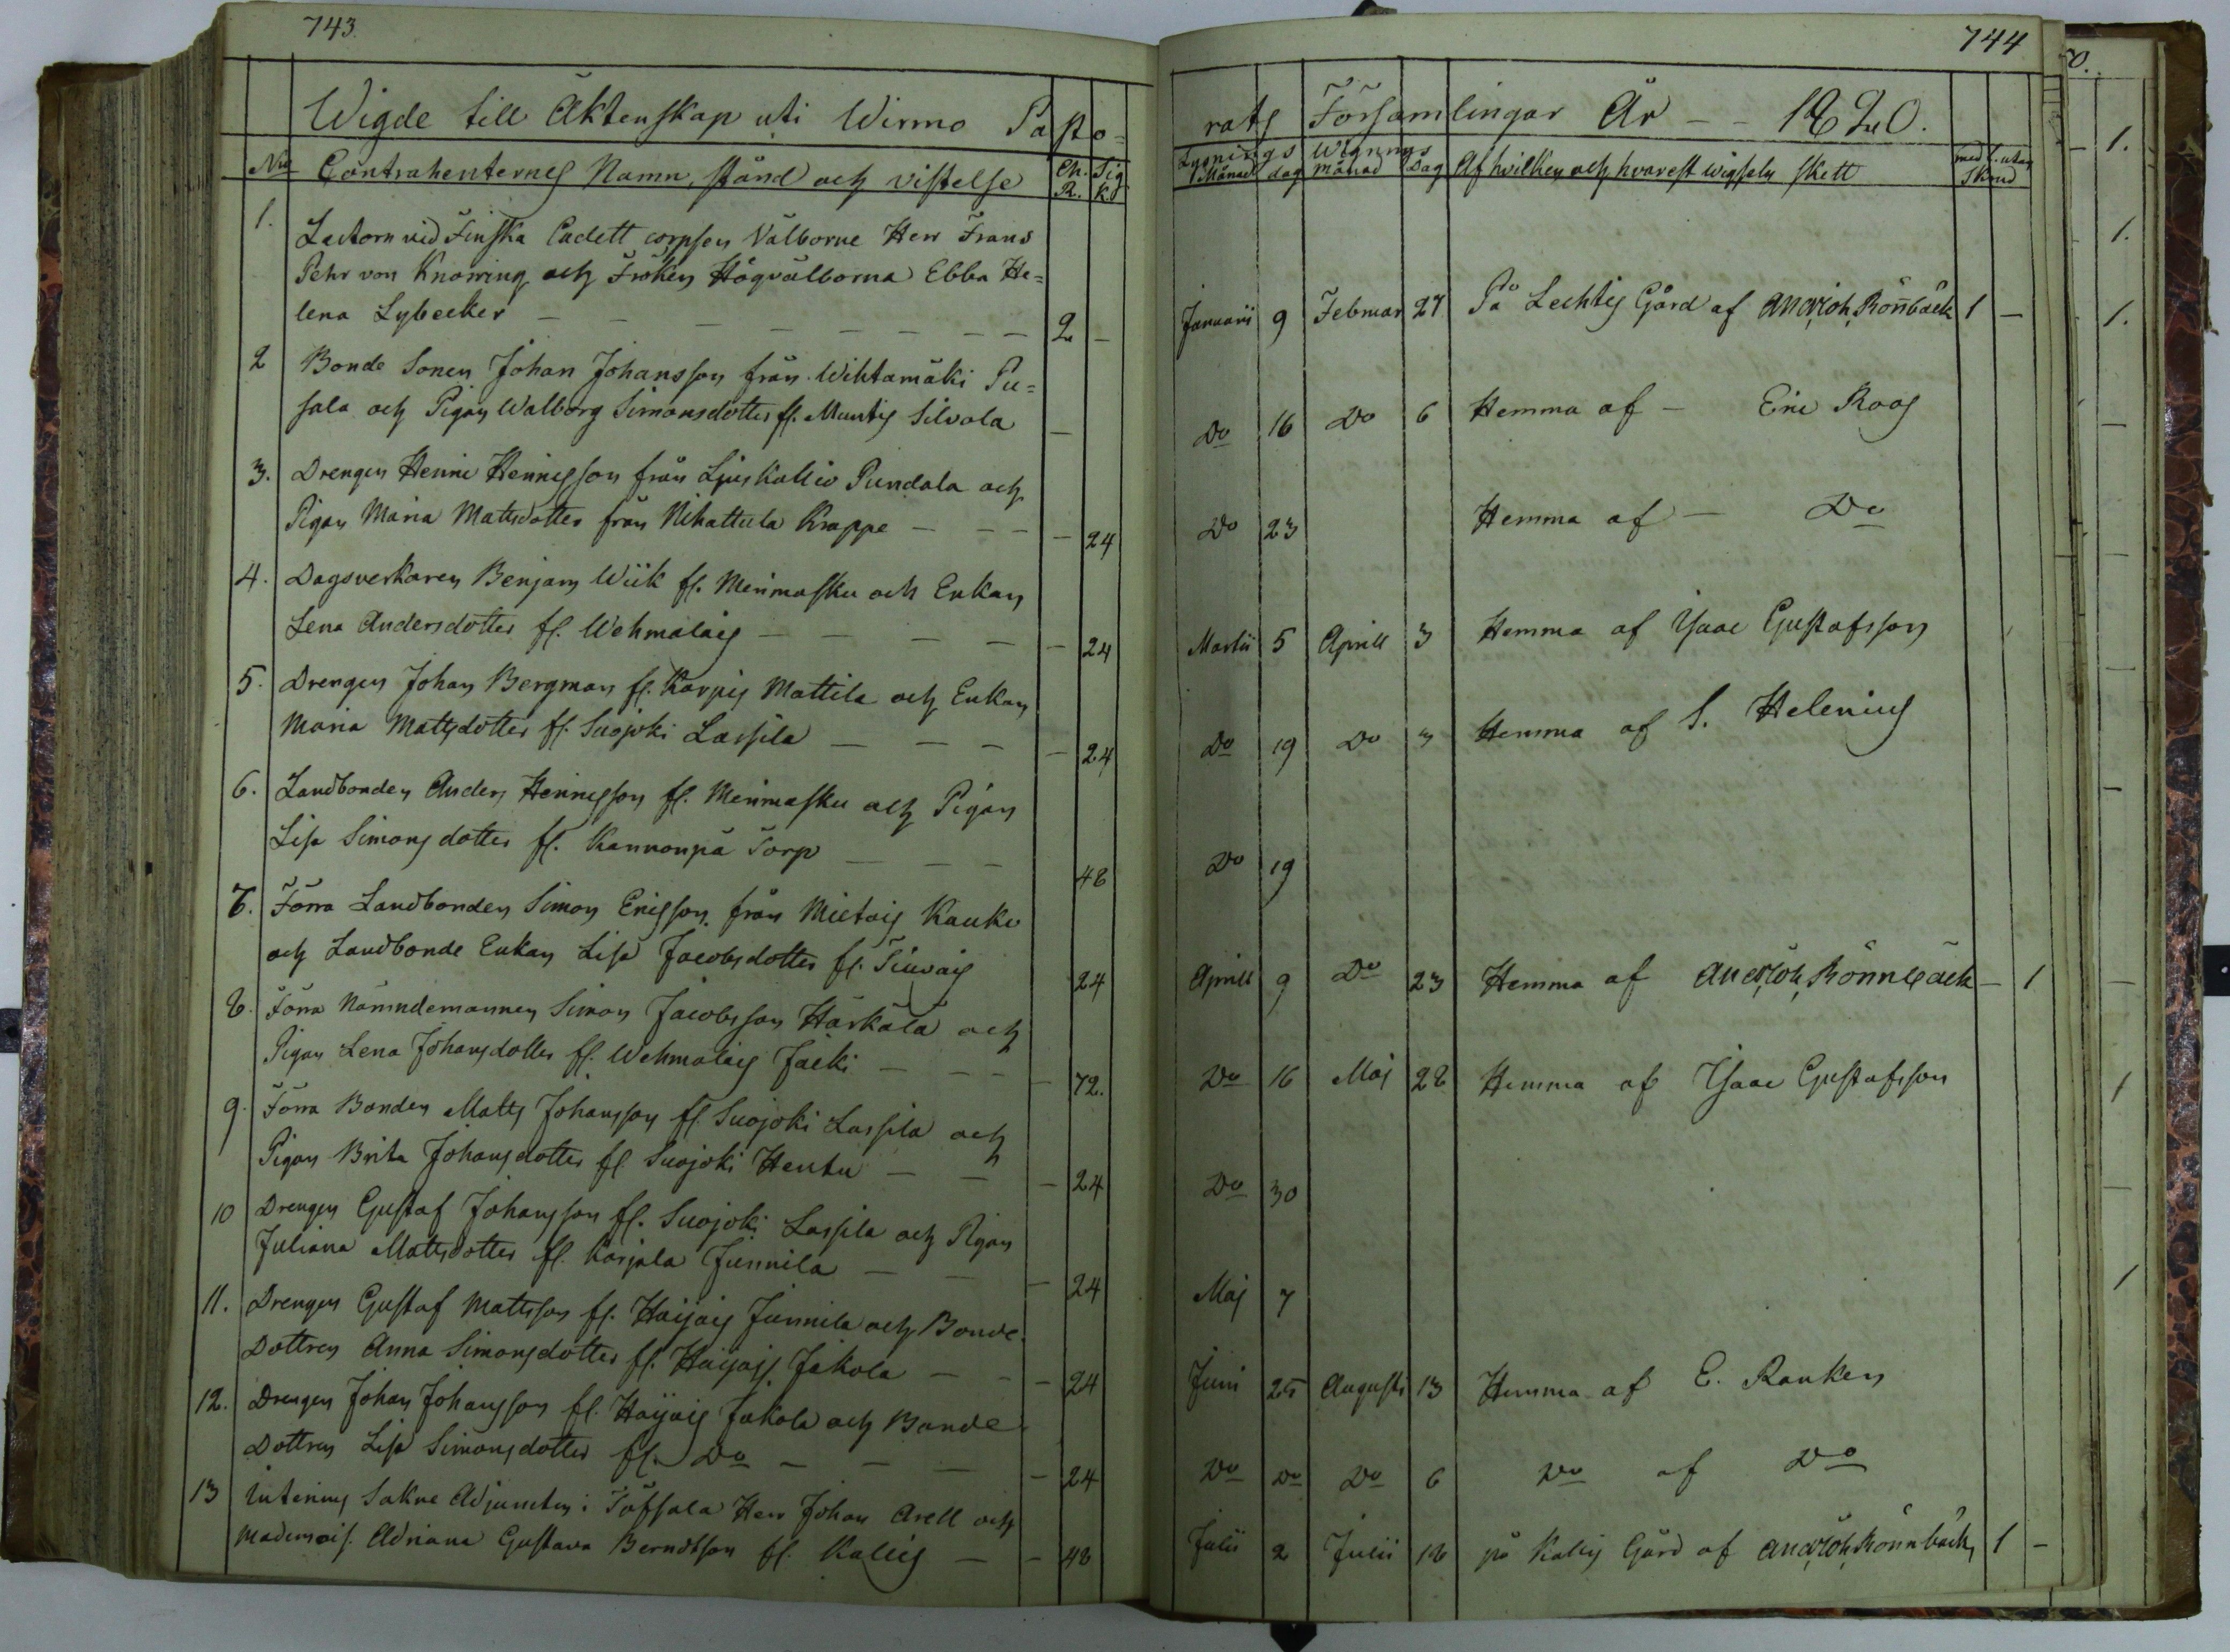 743.
Wigde till Äktenskap uti Wirmo Pasto=
No Contrahenternes Namn, stånd och vistelse Ch. R. Sig k.
1. Lectorn vid Finska Cadett corpsen Välborne Herr Frans
Pehr von Knorring och Fröken Högvälborna Ebba He=
lena Lybecker — — — — — — — 2 —
2 Bonde Sonen Johan Johansson från Wihtamäki Pu=
sala och Pigan Walborg Simonsdotter fr. Muntis Silvola —
3. Drengen Henric Henricsson från Ljuskallio Pundala och
Pigan Maria Mattsdotter från Nihattula Krappe — — — — 24
4. Dagsverkaren Benjam Wiik fr. Merimasku och Enkan
Lena Andersdotter fr. Wehmalais — — — — — 24
5. Drengen Johan Bergman fr. Karpis Mattila och Enkan
Maria Mattsdotter fr. Suojoki Lassila — — — — 24
6. Landbonden Anders Henricsson fr. Merimasku och Pigan
Lisa Simonsdotter fr. Kannonpä Torp — — — 48
7. Förra Landbonden Simon Ericsson från Mietois Kauko
och Landbonde Enkan Lisa Jacobsdotter fr. Tiuvais 24
8. Förra Nämndemannen Simon Jacobsson Härkälä och
Pigan Lena Johansdotter fr. Wehmalais Jäcki — — — — 72.
9. Förra Bonden Matts Johansson fr. Suojoki Lassila och
Pigan Brita Johansdotter fr Suojoki Hentu — — — 24
10 Drengen Gustaf Johansson fr. Suojoki Lassila och Pigan
Juliana Mattsdotter fr. Karjala Junnila — — — 24
11. Drengen Gustaf Mattsson fr. Haijais Junnila och Bonde
Dottren Anna Simonsdotter fr. Haijais Jakola — — — 24
12. Drengen Johan Johansson fr. Haijais Jakola och Bonde
Dottren Lisa Simonsdotter fr. Do — — — — 24
13 Interims Sakne Adjuncten i Töfsala Herr Johan Arell och
Mademois. Adriana Gustava Berndtson fr. Kallis — — 48
744
rats Församlingar År — — 1820.
Lysnings Månad dag Wignings månad Dag Af hvilken och hvarest wigseln skett med l. utan Skrud
Januarii 9 Februar 27 På Lechtis Gård af Rönnbäck 1 —
Do 16 Do 6 Hemma af — Eric Roos
Do 23 Hemma af — Do
Martii 5 Aprill 3 Hemma af Isaac Gustafsson
Do 19 Do 3 Hemma af S. Helenius
Do 19
Aprill 9 Do 23 Hemma af Rönnbäck — 1
Do 16 Maj 28 Hemma af Isaac Gustafsson
Do 30
Maj 7
Juni 25 Augusti 13 Hemma af E. Ranken
Do Do Do 6 Do af Do
Julii 2 Julii 18 på Kallis Gård af Rönnbäck, 1 —